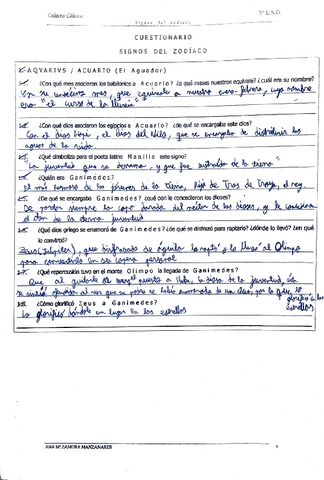 Cultura Clásica 3º E.S.O.
Signos del zodiaco
CUESTIONARIO
SIGNOS DEL ZODÍACO
AQVARIVS / ACUARIO (El Aguador)
¿Con qué mes asociaron los babilonios a Acuario? ¿a qué meses nuestros equivale? ¿cuál era su nombre?
En su undécimo mes, que equivale a nuestro enero-febrero, cuyo nombre
era "el curso de la lluvia"
¿Con qué dios asociaron los egipcios a Acuario? ¿de qué se encargaba este dios?
Con el dios Hapi, el dios del Nilo, que se encargaba de distribuir las
aguas de la vida.
¿Qué simboliza para el poeta latino Manilio este signo?
"La juventud que se derrama, y que fue de la tierra"
¿Quién era Ganimedes?
El más hermoso de los jóvenes de la tierra, hijo de Tros de Troya, el rey.
¿De qué se encargaba Ganimedes? ¿qué don le concedieron los dioses?
De siempre la copa del néctar de los dioses, y le
el don de la eterna juventud
¿De qué dios griego se enamoró de Ganimedes? ¿de qué se disfrazó para raptarlo? ¿dónde lo llevó? ¿en qué
lo convirtió?
Zeus (Júpiter), que disfrazado de águila lo raptó y lo llevó al Olimpo
para convertirlo en su copero personal
¿Qué repercusión tuvo en el monte Olimpo la llegada de Ganimedes?
Que, al quitarle el puesto a Hebe, la diosa de la juventud, ésta
se sintió al ver que su padre se había enamorado de por lo que, lo
glorificó en las
estrellas
¿Cómo glorificó Zeus a Ganimedes?
Lo glorificó dándole un lugar en las estrellas
ANA Mª ZAMORA MANZANARES